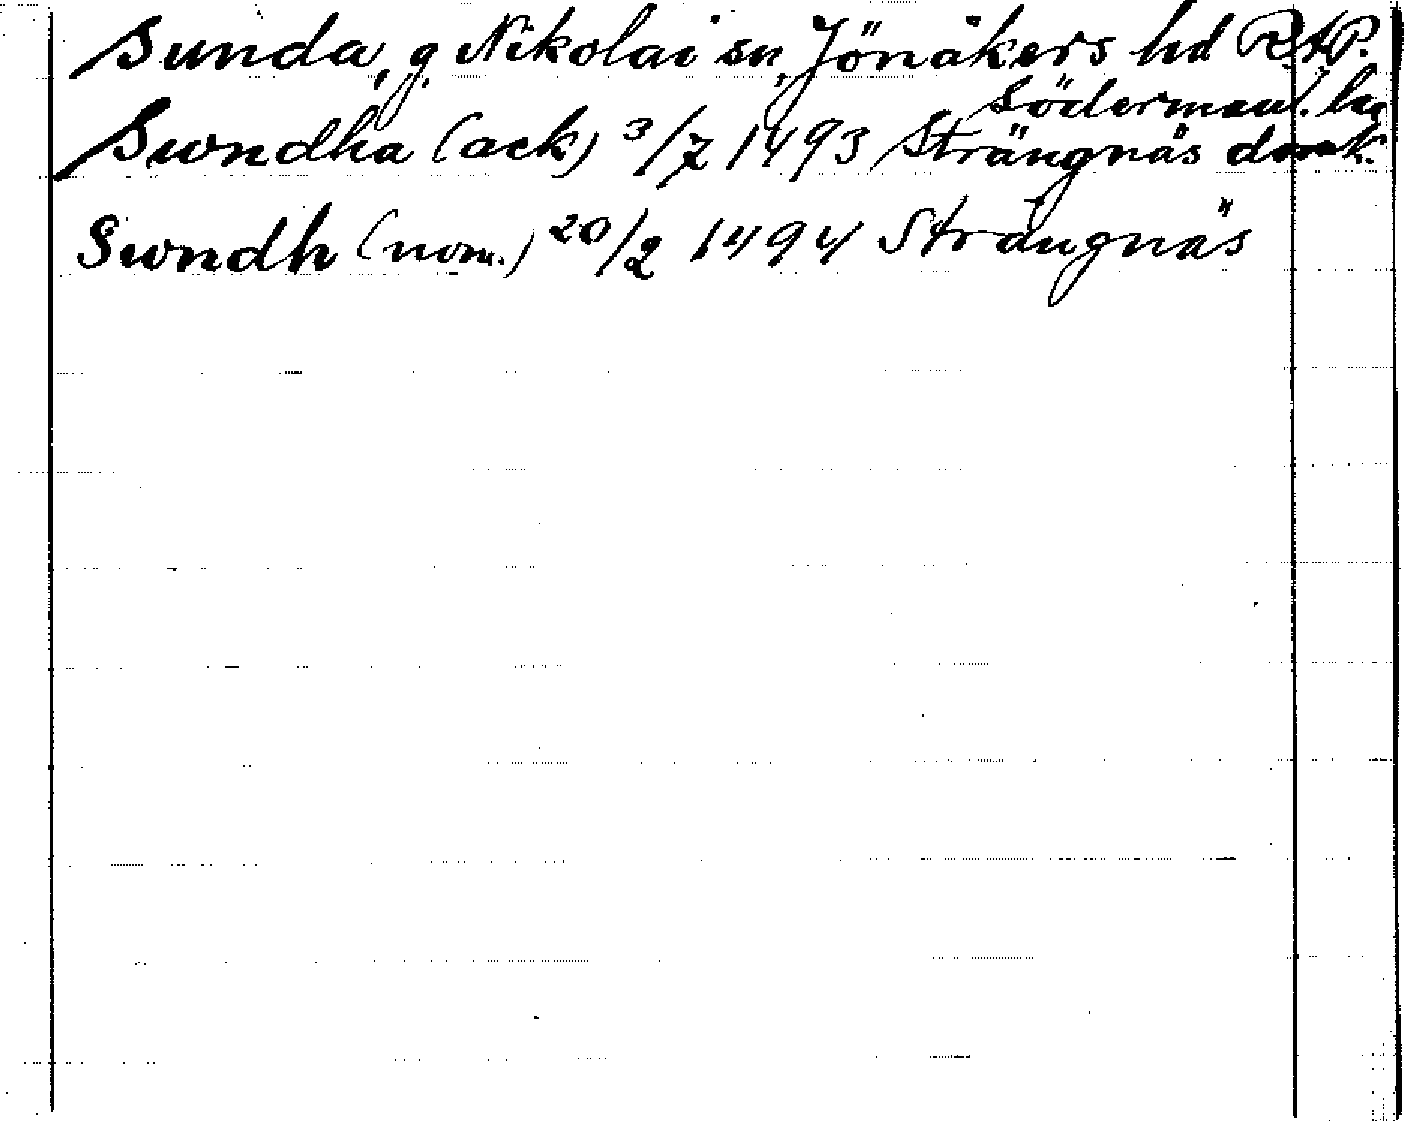 Sunda, g. Nikolai sn, Jönåkers hd RAP.
Södermanl. län
Swndha (ack) 3/7 1493 Strängnäs domk.
Swndh (nom.) 20/2 1494 Strängnäs